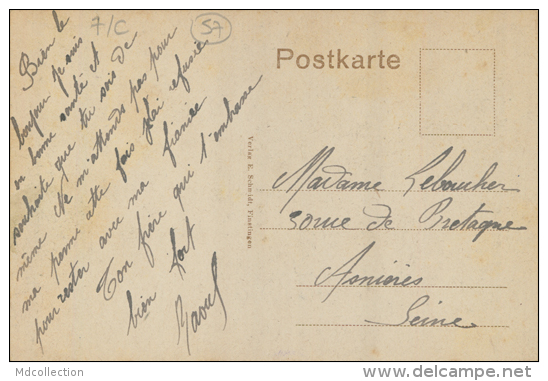 7/C
57
Bien le
bonjour je suis
en bonne santé et
souhaite que tu sois de
même Ne m'attends pas pour
ma perme cette fois j'ai refusé
pour rester avec ma fiancée
Ton frère qui t'embrasse
bien fort
Raoul
Postkarte
Verlag E. Schmidt, Finstingen
Madame Leboucher
30 rue de Bretagne
Asnières
Seine
Mdcollection
www.delcampe.net